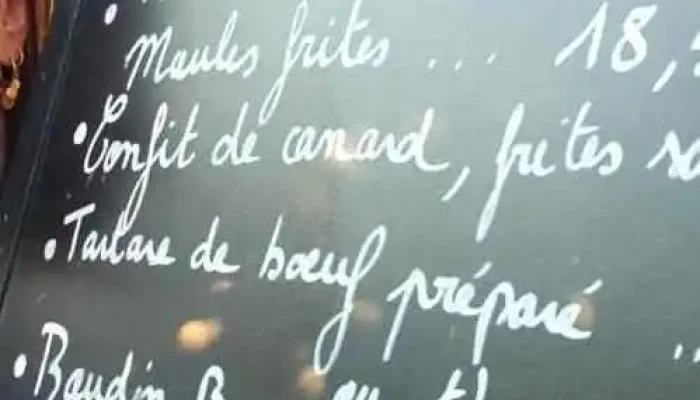 Moules frites ... 18,
• Confit de canard, frites sa
• Tartare de bœuf préparé ..
• Boudin